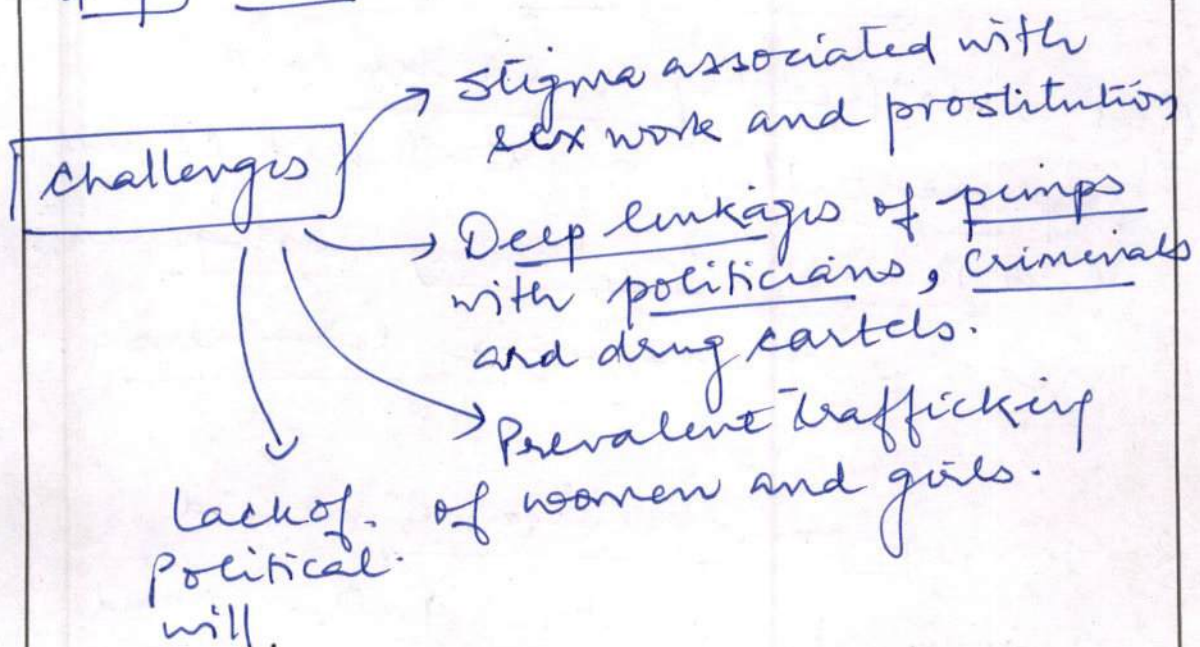 Stigma associated with
sex work and prostitution
Challenges
Deep linkages of pimps
with politicians, criminals
and drug cartels.
Prevalent trafficking
of women and girls.
Lack of.
Political.
will.